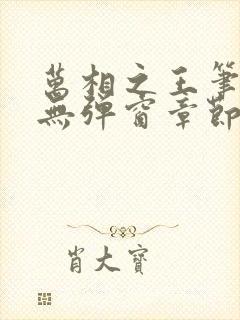 萬相之王筆
無彈窗章節
肖大寶